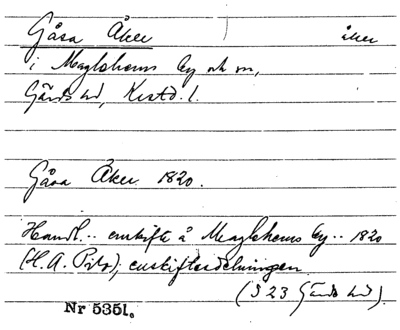 Gåsa Åker åker
i Maglehems by och sn,
Gärds hd, Kristd. l.
Gåsa Åker 1820.
Handl. .. enskifte å Maglehems by .. 1820
(H. A. Pihl), enskiftesdelningen.
(J 23 Gärds hd).
Nr 5351.